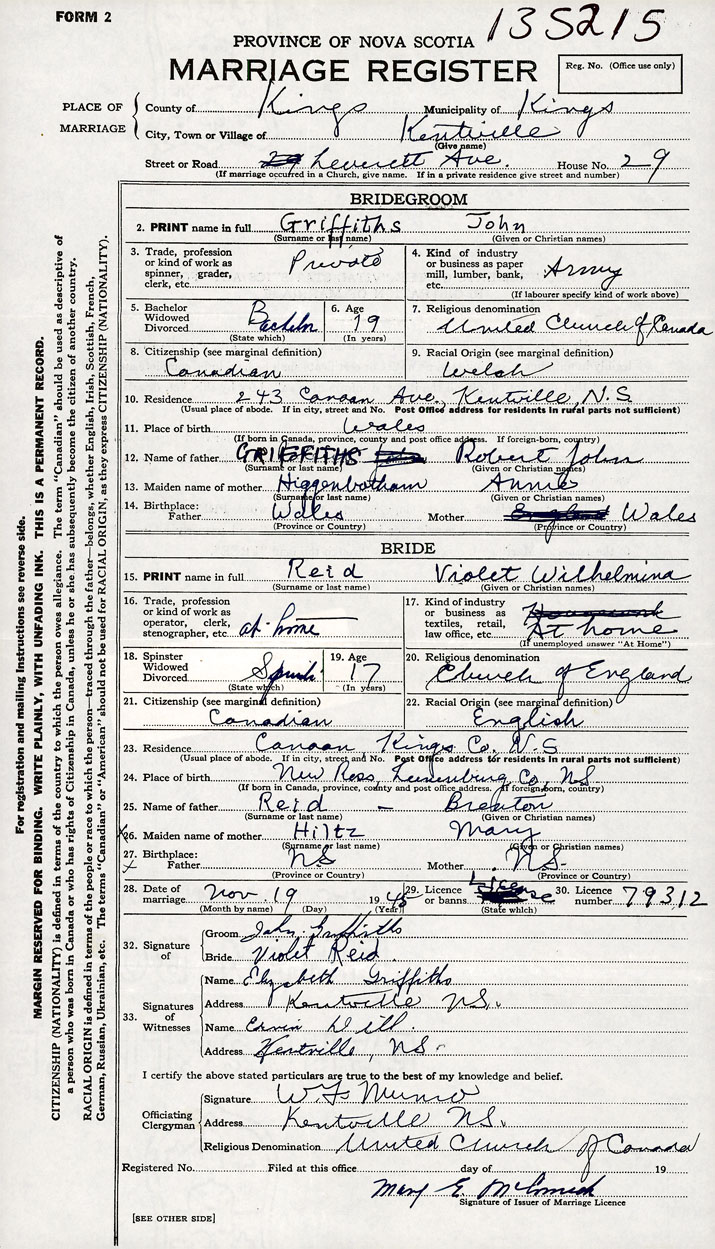 FORM 2
135215
PROVINCE OF NOVA SCOTIA
MARRIAGE REGISTER
Reg. No. (Office use only)
PLACE OF MARRIAGE
County of Kings Municipality of Kings
City, Town or Village of Kentville
(Give name)
Street or Road 29 Leverett Ave. House No. 29
(If marriage occurred in a Church, give name. If in a private residence give street and number)
BRIDEGROOM
2. PRINT name in full Griffiths John
(Surname or last name) (Given or Christian names)
3. Trade, profession or kind of work as spinner, grader, clerk, etc. Private
4. Kind of industry or business as paper mill, lumber, bank, etc. Army
(If labourer specify kind of work above)
5. Bachelor Widowed Divorced Bachelor
(State which)
6. Age 19
(In years)
7. Religious denomination United Church of Canada
8. Citizenship (see marginal definition) Canadian
9. Racial Origin (see marginal definition) Welsh
10. Residence 243 Canaan Ave, Kentville, N.S
(Usual place of abode. If in city, street and No. Post Office address for residents in rural parts not sufficient)
11. Place of birth Wales
(If born in Canada, province, county and post office address. If foreign-born, country)
12. Name of father GRIFFITHS Robert John
(Surname or last name) (Given or Christian names)
13. Maiden name of mother Higgenbotham Annie
(Surname or last name) (Given or Christian names)
14. Birthplace: Father Wales Mother England Wales
(Province or Country) (Province or Country)
BRIDE
15. PRINT name in full Reid Violet Wilhelmina
(Surname or last name) (Given or Christian names)
16. Trade, profession or kind of work as operator, clerk, stenographer, etc. at home
17. Kind of industry or business as textiles, retail, law office, etc. At home
(If unemployed answer "At Home")
18. Spinster Widowed Divorced
(State which)
19. Age 17
(In years)
20. Religious denomination Church of England
21. Citizenship (see marginal definition) Canadian
22. Racial Origin (see marginal definition) English
23. Residence Canaan Kings Co. N.S
(Usual place of abode. If in city, street and No. Post Office address for residents in rural parts not sufficient)
24. Place of birth New Ross, Lunenburg Co, NS
(If born in Canada, province, county and post office address. If foreign-born, country)
25. Name of father Reid - Brenton
(Surname or last name) (Given or Christian names)
26. Maiden name of mother Hiltz Mary
(Surname or last name) (Given or Christian names)
27. Birthplace: Father NS Mother NS-
(Province or Country) (Province or Country)
28. Date of marriage Nov. 19 1945
(Month by name) (Day) (Year)
29. Licence or banns License
(State which)
30. Licence number 79312
32. Signature of
Groom John Griffiths
Bride Violet Reid
33. Signatures of Witnesses
Name Elizabeth Griffiths
Address Kentville NS.
Name Ervin Dill
Address Kentville, NS-
I certify the above stated particulars are true to the best of my knowledge and belief.
Officiating Clergyman
Signature W. F. Munro
Address Kentville NS.
Religious Denomination United Church of Canada
Registered No. Filed at this office day of 19
Mary E.
Signature of Issuer of Marriage Licence
[SEE OTHER SIDE]
For registration and mailing instructions see reverse side.
MARGIN RESERVED FOR BINDING. WRITE PLAINLY, WITH UNFADING INK. THIS IS A PERMANENT RECORD.
CITIZENSHIP (NATIONALITY) is defined in terms of the country to which the person owes allegiance. The term "Canadian" should be used as descriptive of
a person who was born in Canada or who has rights of Citizenship in Canada, unless he or she has subsequently become the citizen of another country.
RACIAL ORIGIN is defined in terms of the people or race to which the person—traced through the father—belongs, whether English, Irish, Scottish, French,
German, Russian, Ukrainian, etc. The terms "Canadian" or "American" should not be used for RACIAL ORIGIN, as they express CITIZENSHIP (NATIONALITY).